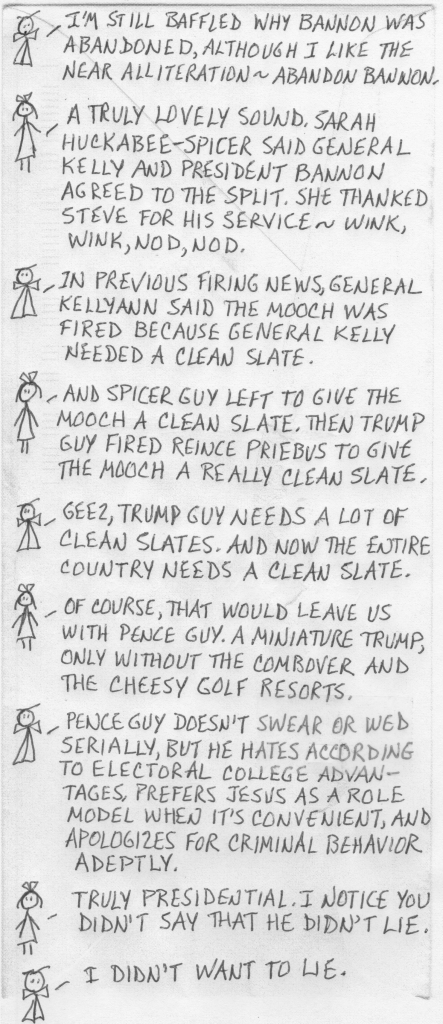 I'M STILL BAFFLED WHY BANNON WAS
ABANDONED, ALTHOUGH I LIKE THE
NEAR ALLITERATION~ ABANDON BANNON.
A TRULY LOVELY SOUND. SARAH
HUCKABEE-SPICER SAID GENERAL
KELLY AND PRESIDENT BANNON
AGREED TO THE SPLIT. SHE THANKED
STEVE FOR HIS SERVICE~ WINK,
WINK, NOD, NOD.
IN PREVIOUS FIRING NEWS, GENERAL
KELLYANN SAID THE MOOCH WAS
FIRED BECAUSE GENERAL KELLY
NEEDED A CLEAN SLATE.
AND SPICER GUY LEFT TO GIVE THE
MOOCH A CLEAN SLATE. THEN TRUMP
GUY FIRED REINCE PRIEBUS TO GIVE
THE MOOCH A REALLY CLEAN SLATE.
GEEZ, TRUMP GUY NEEDS A LOT OF
CLEAN SLATES. AND NOW THE ENTIRE
COUNTRY NEEDS A CLEAN SLATE.
OF COURSE, THAT WOULD LEAVE US
WITH PENCE GUY. A MINIATURE TRUMP,
ONLY WITHOUT THE COMBOVER AND
THE CHEESY GOLF RESORTS.
PENCE GUY DOESN'T SWEAR OR WED
SERIALLY, BUT HE HATES ACCORDING
TO ELECTORAL COLLEGE ADVAN-
TAGES, PREFERS JESUS AS A ROLE
MODEL WHEN IT'S CONVENIENT, AND
APOLOGIZES FOR CRIMINAL BEHAVIOR
ADEPTLY.
TRULY PRESIDENTIAL. I NOTICE YOU
DIDN'T SAY THAT HE DIDN'T LIE.
I DIDN'T WANT TO LIE.